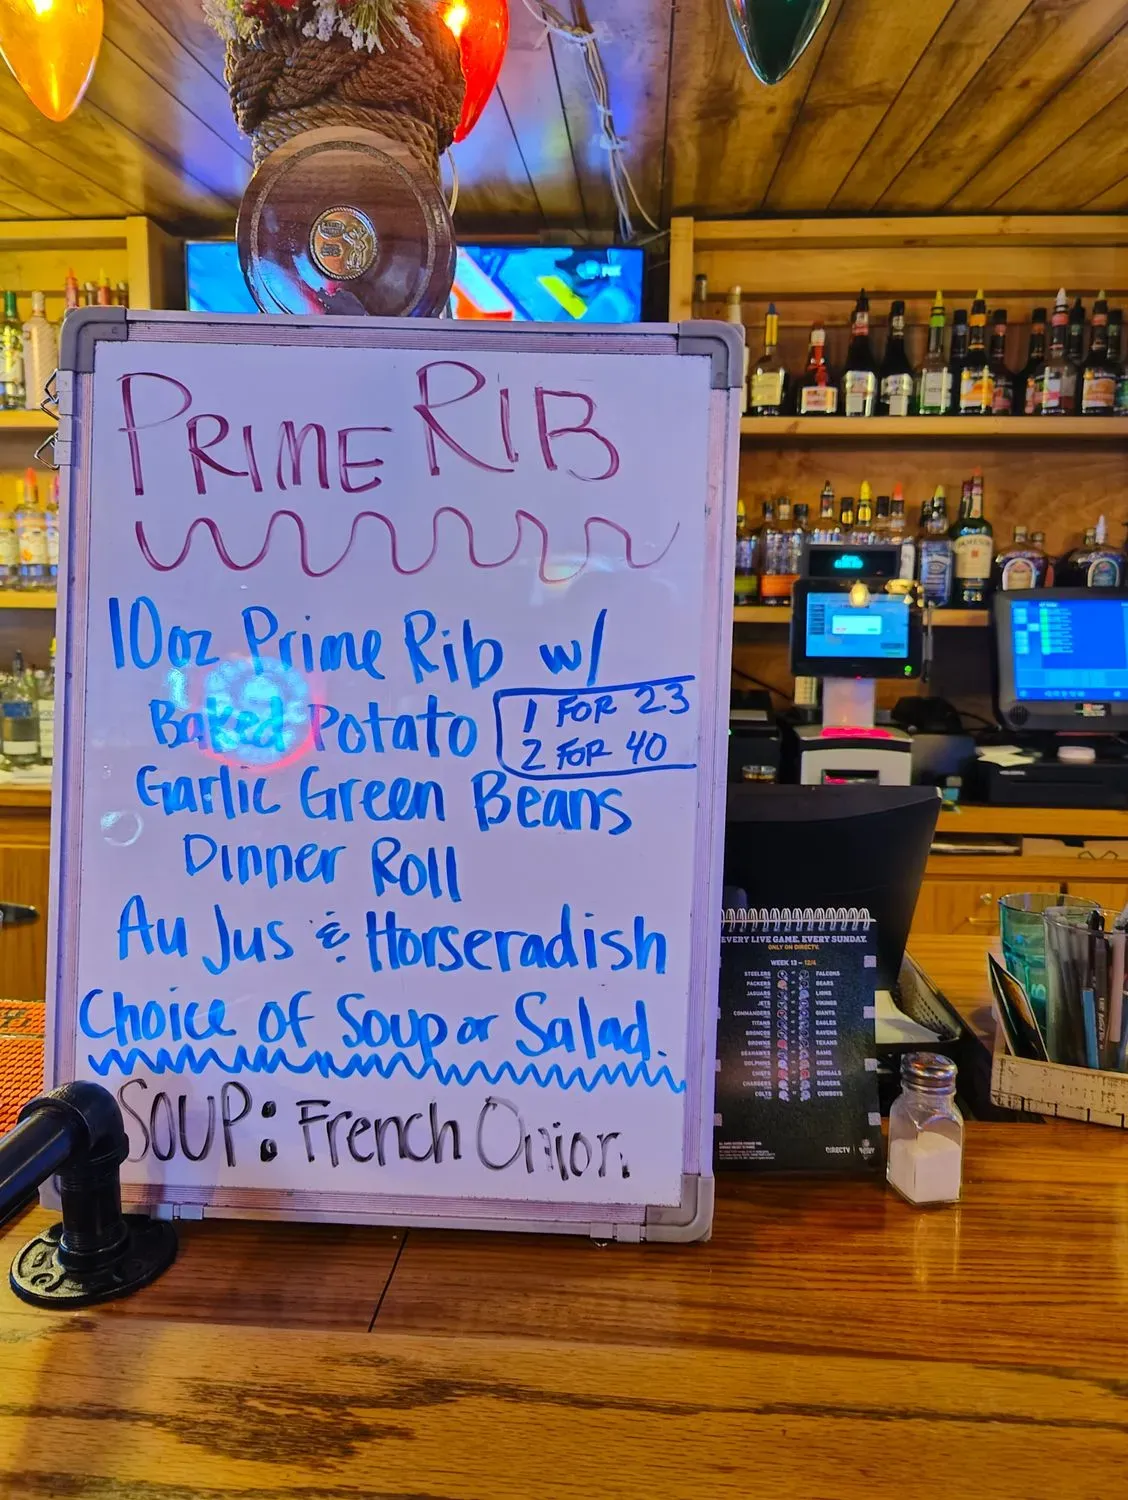 PRIME RIB
10oz Prime Rib w/
Baked Potato
1 FOR 23
2 FOR 40
Garlic Green Beans
Dinner Roll
Au Jus & Horseradish
Choice of Soup or Salad.
SOUP: French Onion.
EVERY LIVE GAME. EVERY SUNDAY.
ONLY ON DIRECTV.
WEEK 13 – 12/4
STEELERS FALCONS
PACKERS BEARS
JAGUARS LIONS
JETS VIKINGS
COMMANDERS GIANTS
TITANS EAGLES
BRONCOS RAVENS
BROWNS TEXANS
SEAHAWKS RAMS
DOLPHINS 49ERS
CHIEFS BENGALS
CHARGERS RAIDERS
COLTS COWBOYS
DIRECTV
JAMESON